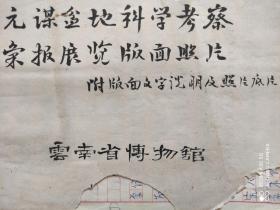 元谋盆地科学考察
汇报展览版面照片
附版面文字说明及照片底片
雲南省博物館